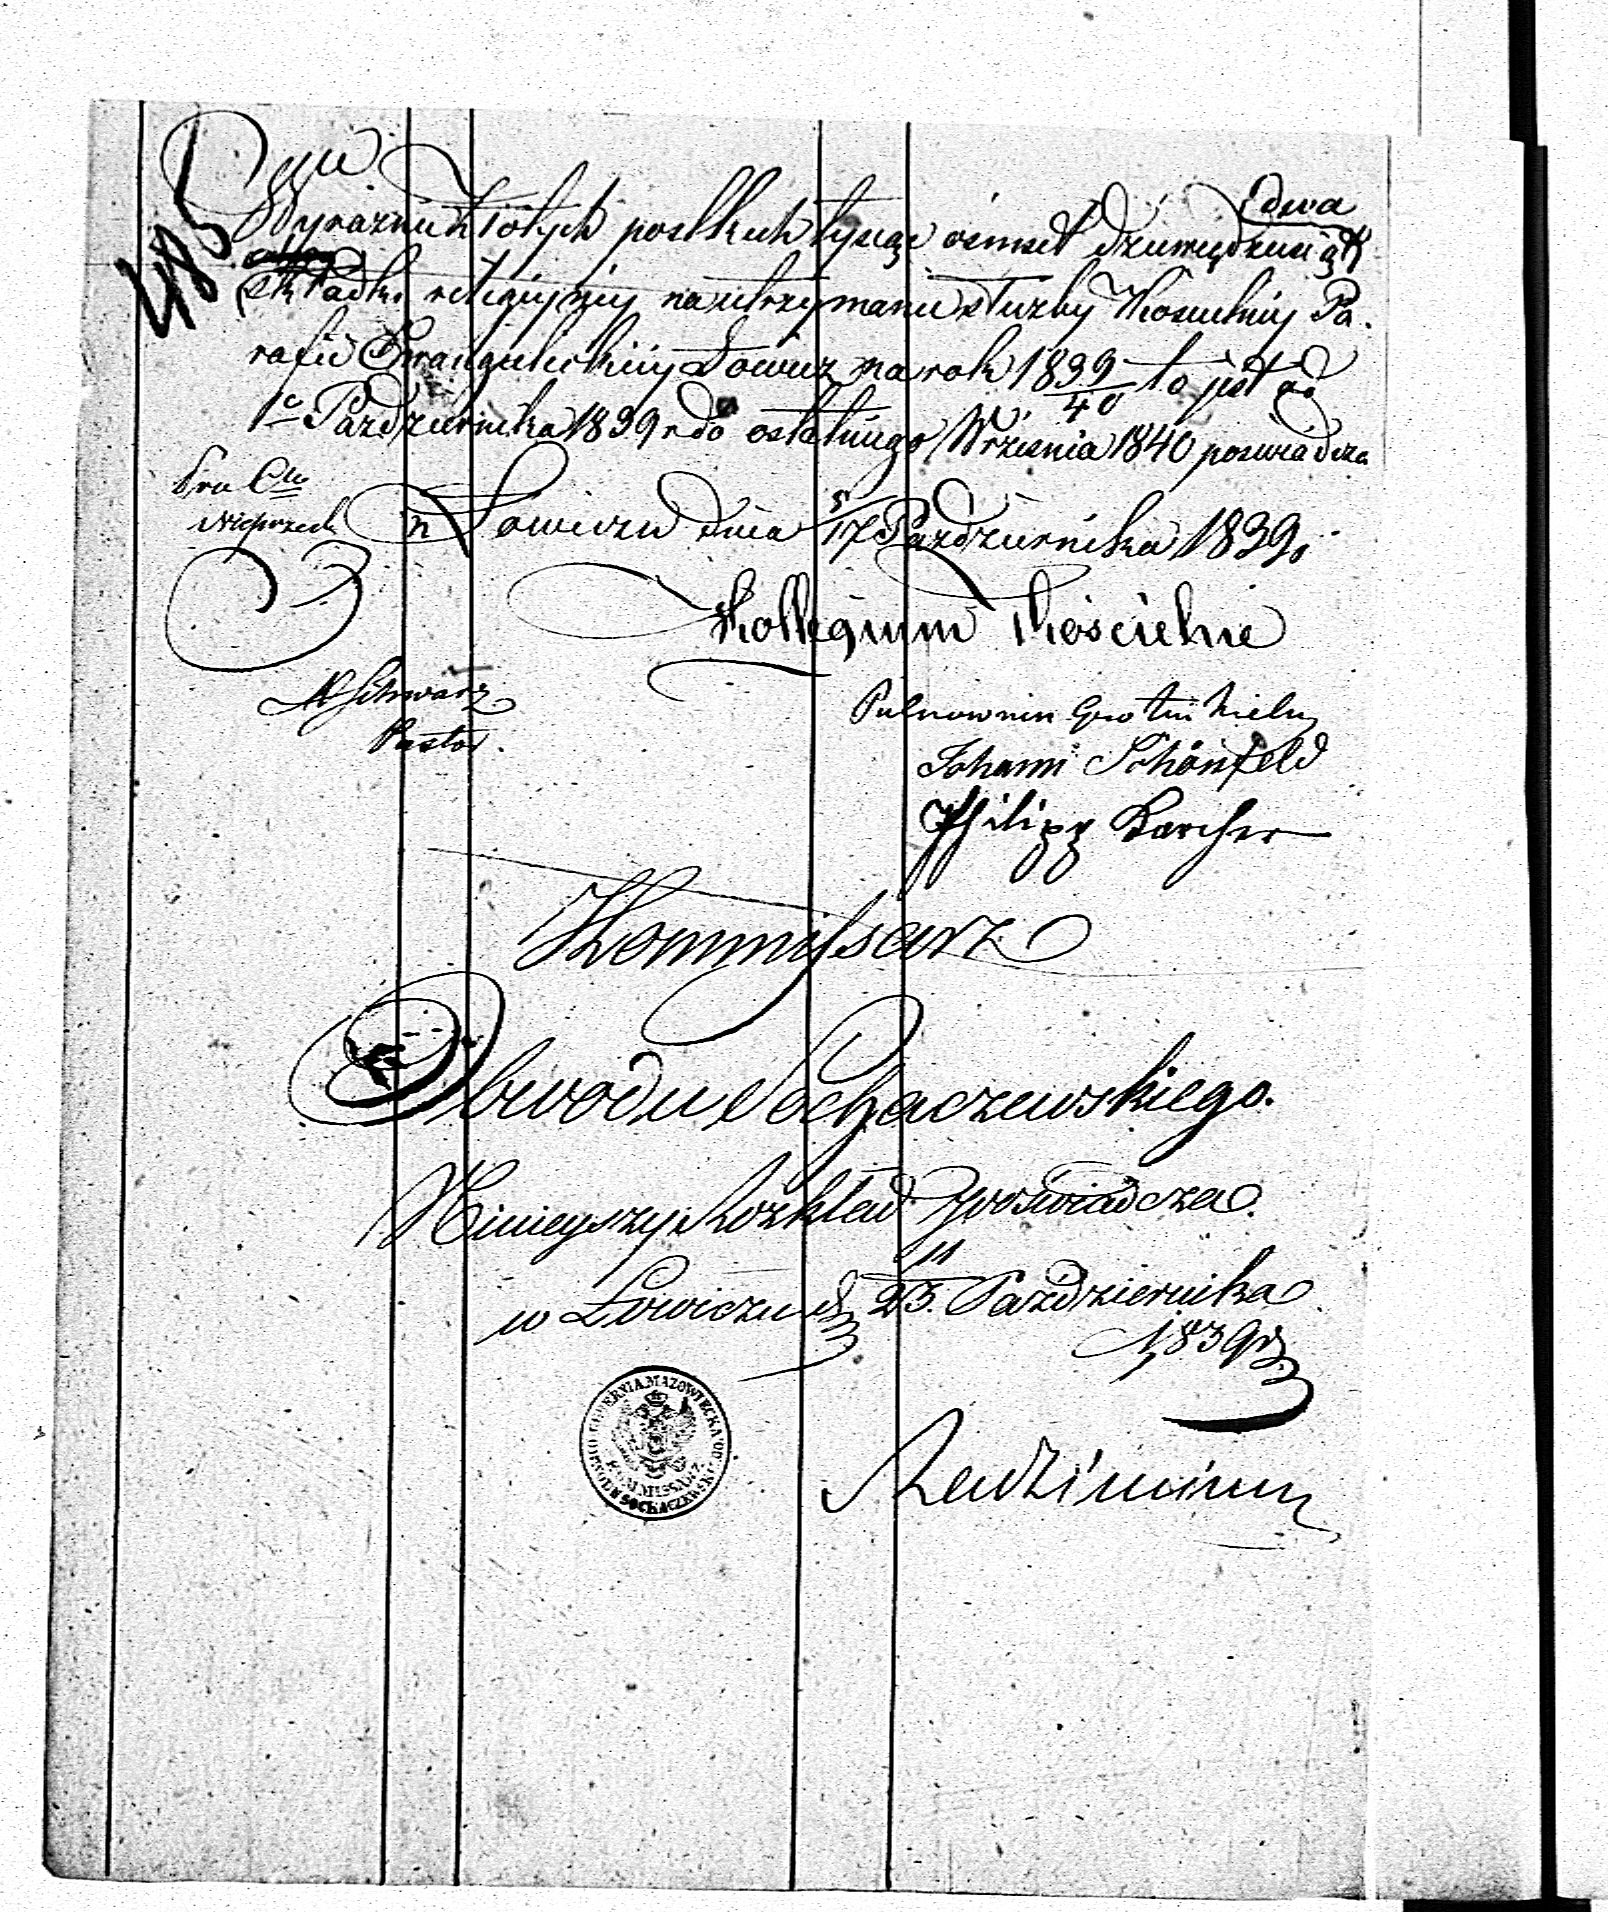 485
Wyraznie złotych polskich tysiąc ośmset dziewięćdziesiąt dwa
składki religijnej na utrzymanie służby Kościelnej Pa-
rafii Ewangelickiej Łowicz na rok 1839/40 to jest od
1o Pazdziernika 1839 r do ostatniego Września 1840 poswiadcza
w Łowiczu dnia 5/17 Pazdziernika 1839.
Kollegium Kościelne
Schwarz
Pastor.
Johann Schönfeld
Philipp Karcher
Kommissarz
Obwodu Sochaczewskiego.
Niniejszy Rozkład poświadcza.
w Łowiczu d 11/23. Października
1839 r
GUBERNIA MAZOWIECKA
KOMMISSARZ
OBWODU SOCHACZEWSKI